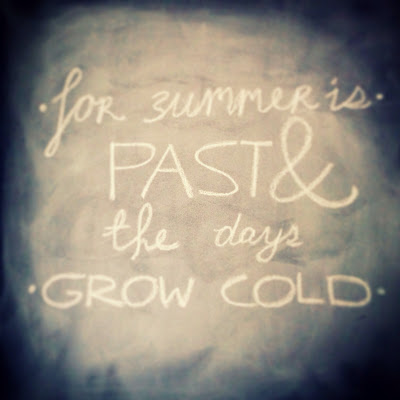 for summer is
PAST &
the days
GROW COLD